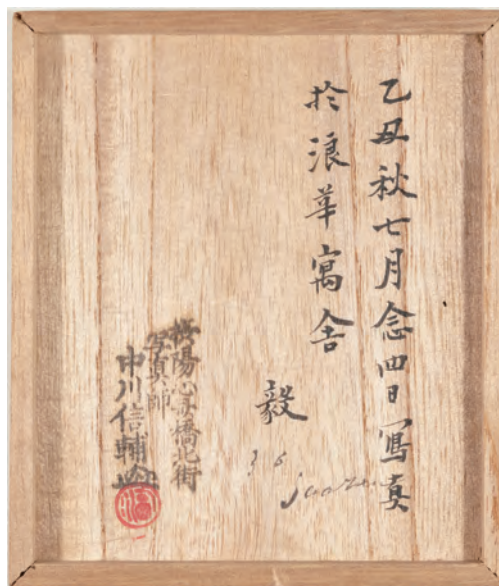 乙丑秋七月念四日寫真
於浪華寓舎
毅
36
陽心斎橋北街
写真師
中川信輔